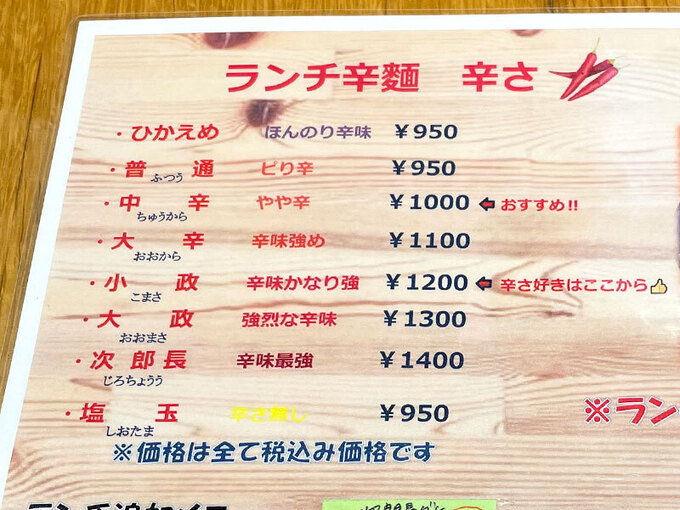 ランチ辛麺 辛さ
・ひかえめ ほんのり辛味 ¥950
・普通 ピリ辛 ¥950
ふつう
・中辛 やや辛 ¥1000 おすすめ!!
ちゅうから
・大辛 辛味強め ¥1100
おおから
・小政 辛味かなり強 ¥1200 辛さ好きはここから
こまさ
・大政 強烈な辛味 ¥1300
おおまさ
・次郎長 辛味最強 ¥1400
じろちょうう
・塩玉 辛さ無し ¥950
しおたま
※ラン
※価格は全て税込み価格です